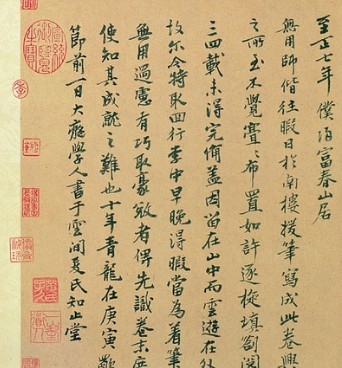 至正七年僕歸富春山居
無用師偕往暇日於南樓援筆寫成此卷興
之所至不覺亹亹布置如許逐旋填劄閱
三四載未得完備盖因留在山中而雲遊在外
故爾今特取回行李中早晚得暇當為着筆
無用過慮有巧取豪敚者俾先識卷末庶
使知其成就之難也十年青龍在庚寅歜
節前一日大癡學人書于雲間夏氏知止堂
宣統御覽之寶